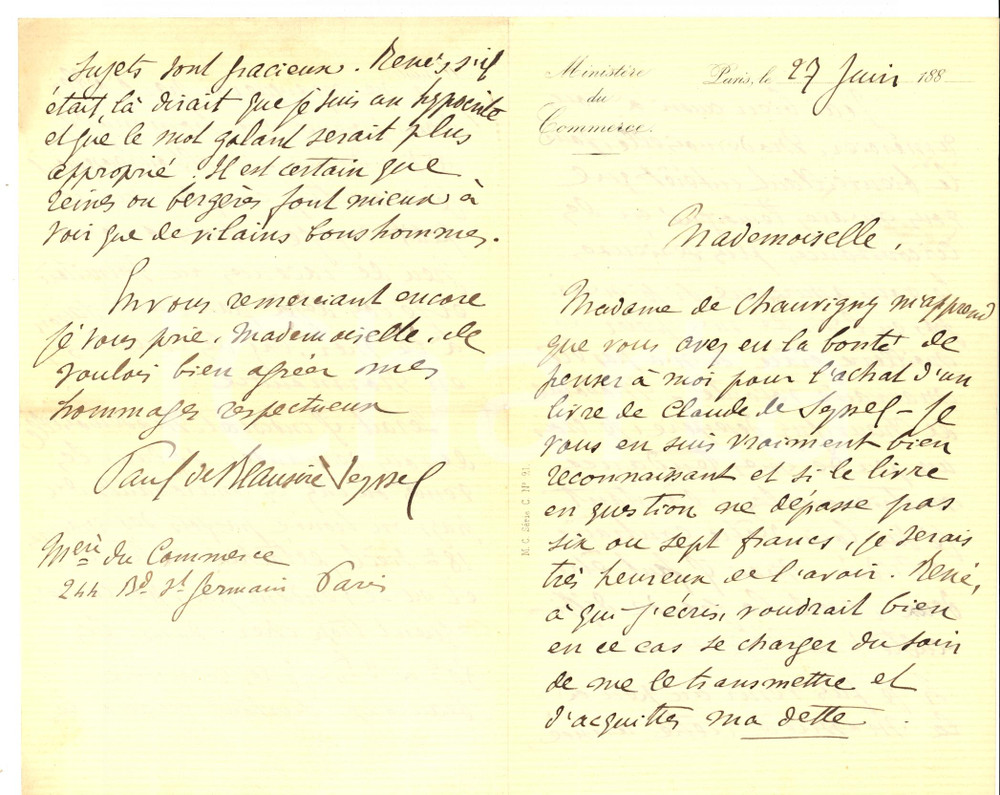 Ministère
du
Commerce.
Paris, le 27 Juin 188
Mademoiselle,
Madame de Chauvigny m'apprend
que vous avez eu la bonté de
penser à moi pour l'achat d'un
livre de Claude de Seyssel – Je
vous en suis vraiment bien
reconnaissant et si le livre
en question ne dépasse pas
six ou sept francs, je serais
très heureux de l'avoir. René,
à qui j'écris, voudrait bien
en ce cas se charger du soin
de me le transmettre et
d'acquitter ma dette.
M.C. Série C. N° 21.
sujets sont gracieux. René, s'il
était là dirait que je suis un hypocrite
et que le mot galant serait plus
approprié. Il est certain que
reines ou bergères font mieux à
voir que de vilains bonshommes.
En vous remerciant encore
je vous prie, Mademoiselle, de
vouloir bien agréer mes
hommages respectueux
Paul de
Mère du Commerce
244 Bd St Germain Paris